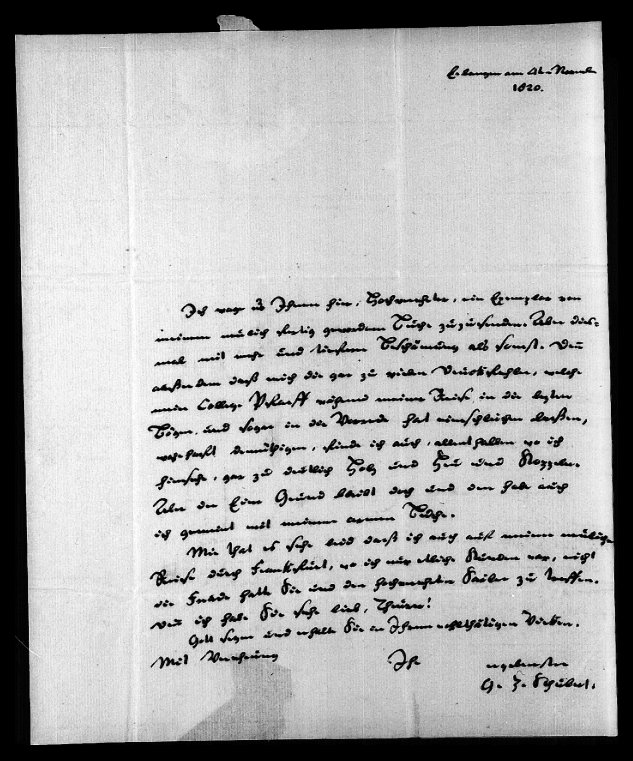 Erlangen am 4ten Novemb.
1820.
Ich wage es Ihnen hier, Hochverehrter, ein Exemplar von
meinem neulich fertig gewordnem Buche zuzusenden. Aber dies-
mal mit mehr und tieferer Beschämung als sonst. Denn
außerdem daß mich die gar zu vielen Druckfehler, welche
mein College Pfaff während meiner Reise, in die letzten
Bögen und sogar in die Vorrede hat einschleichen laßen,
wahrhaft demüthigen, finde ich auch, allenthalben wo ich
hinsehe, gar zu deutlich Holz und Heu und Stoppeln.
Aber der Eine Grund bleibt doch und den habe auch
ich gemeint mit meinem armen Buche.
Mir that es sehr leid daß ich auch auf meiner neulichen
Reise durch Frankfurt, wo ich nur etliche Stunden war, nicht
die Freude hatte Sie und den hochverehrten zu treffen.
denn ich habe Sie sehr lieb, Theurer!
Gott segne und erhalte Sie in Ihrem wohlthätigen Wirken.
Mit Verehrung Ihr ergebenster
G. H. Schubert.